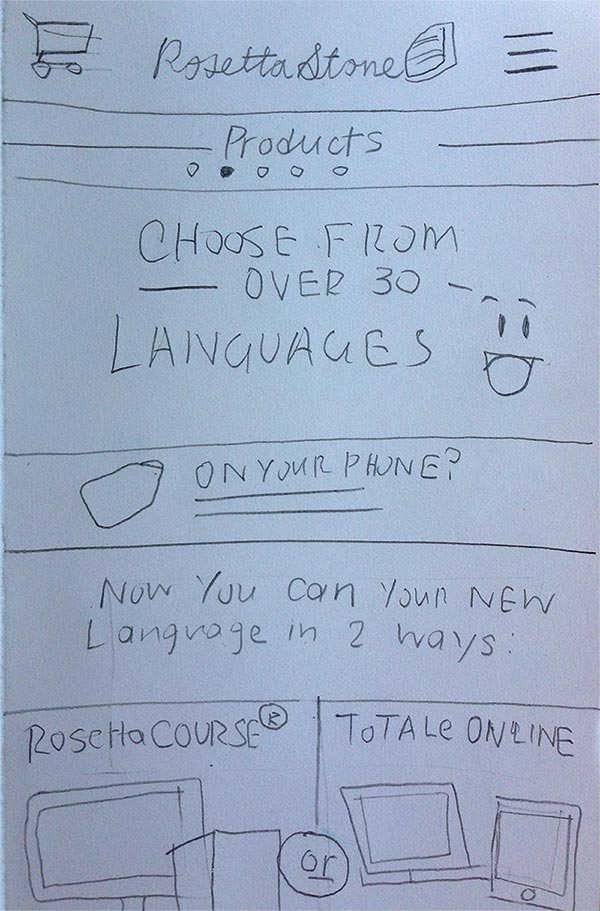 Rosetta Stone
Products
CHOOSE FROM
OVER 30
LANGUAGES
ON YOUR PHONE?
Now You can Your NEW
Language in 2 ways:
RosettaCOURSE®
ToTALe ONLINE
or